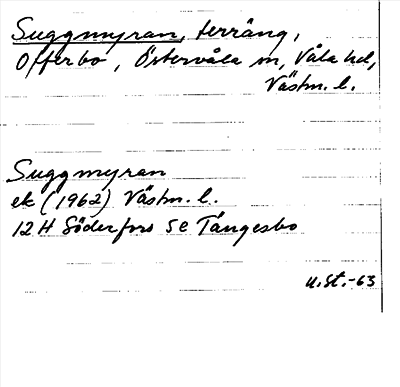 Suggmyran, terräng,
Offerbo, Östervåla sn, Våla hd,
Västm. l.
Suggmyran
ek (1962) Västm. l.
12 H Söderfors 5e Tångesbo
U.St.-63